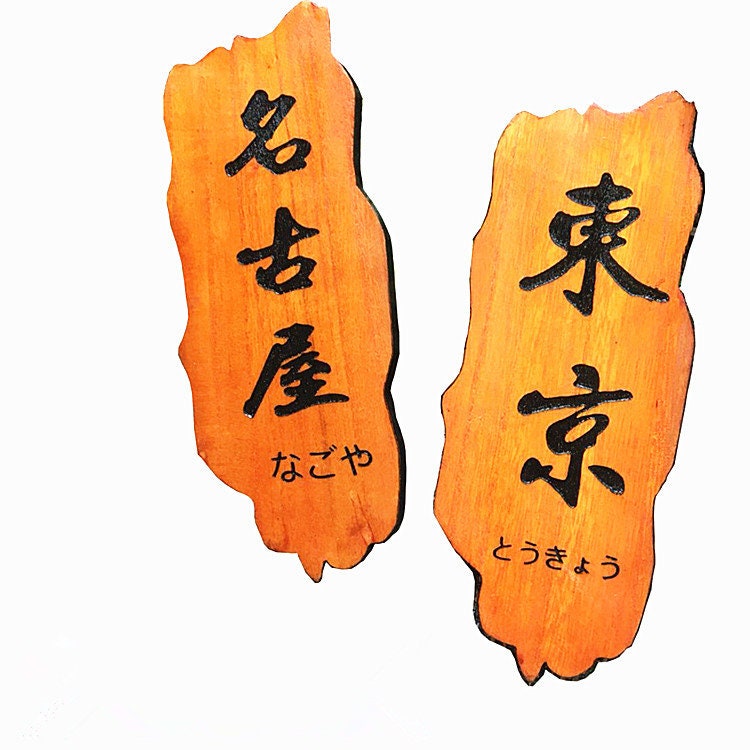 名古屋
なごや
東京
とうきょう